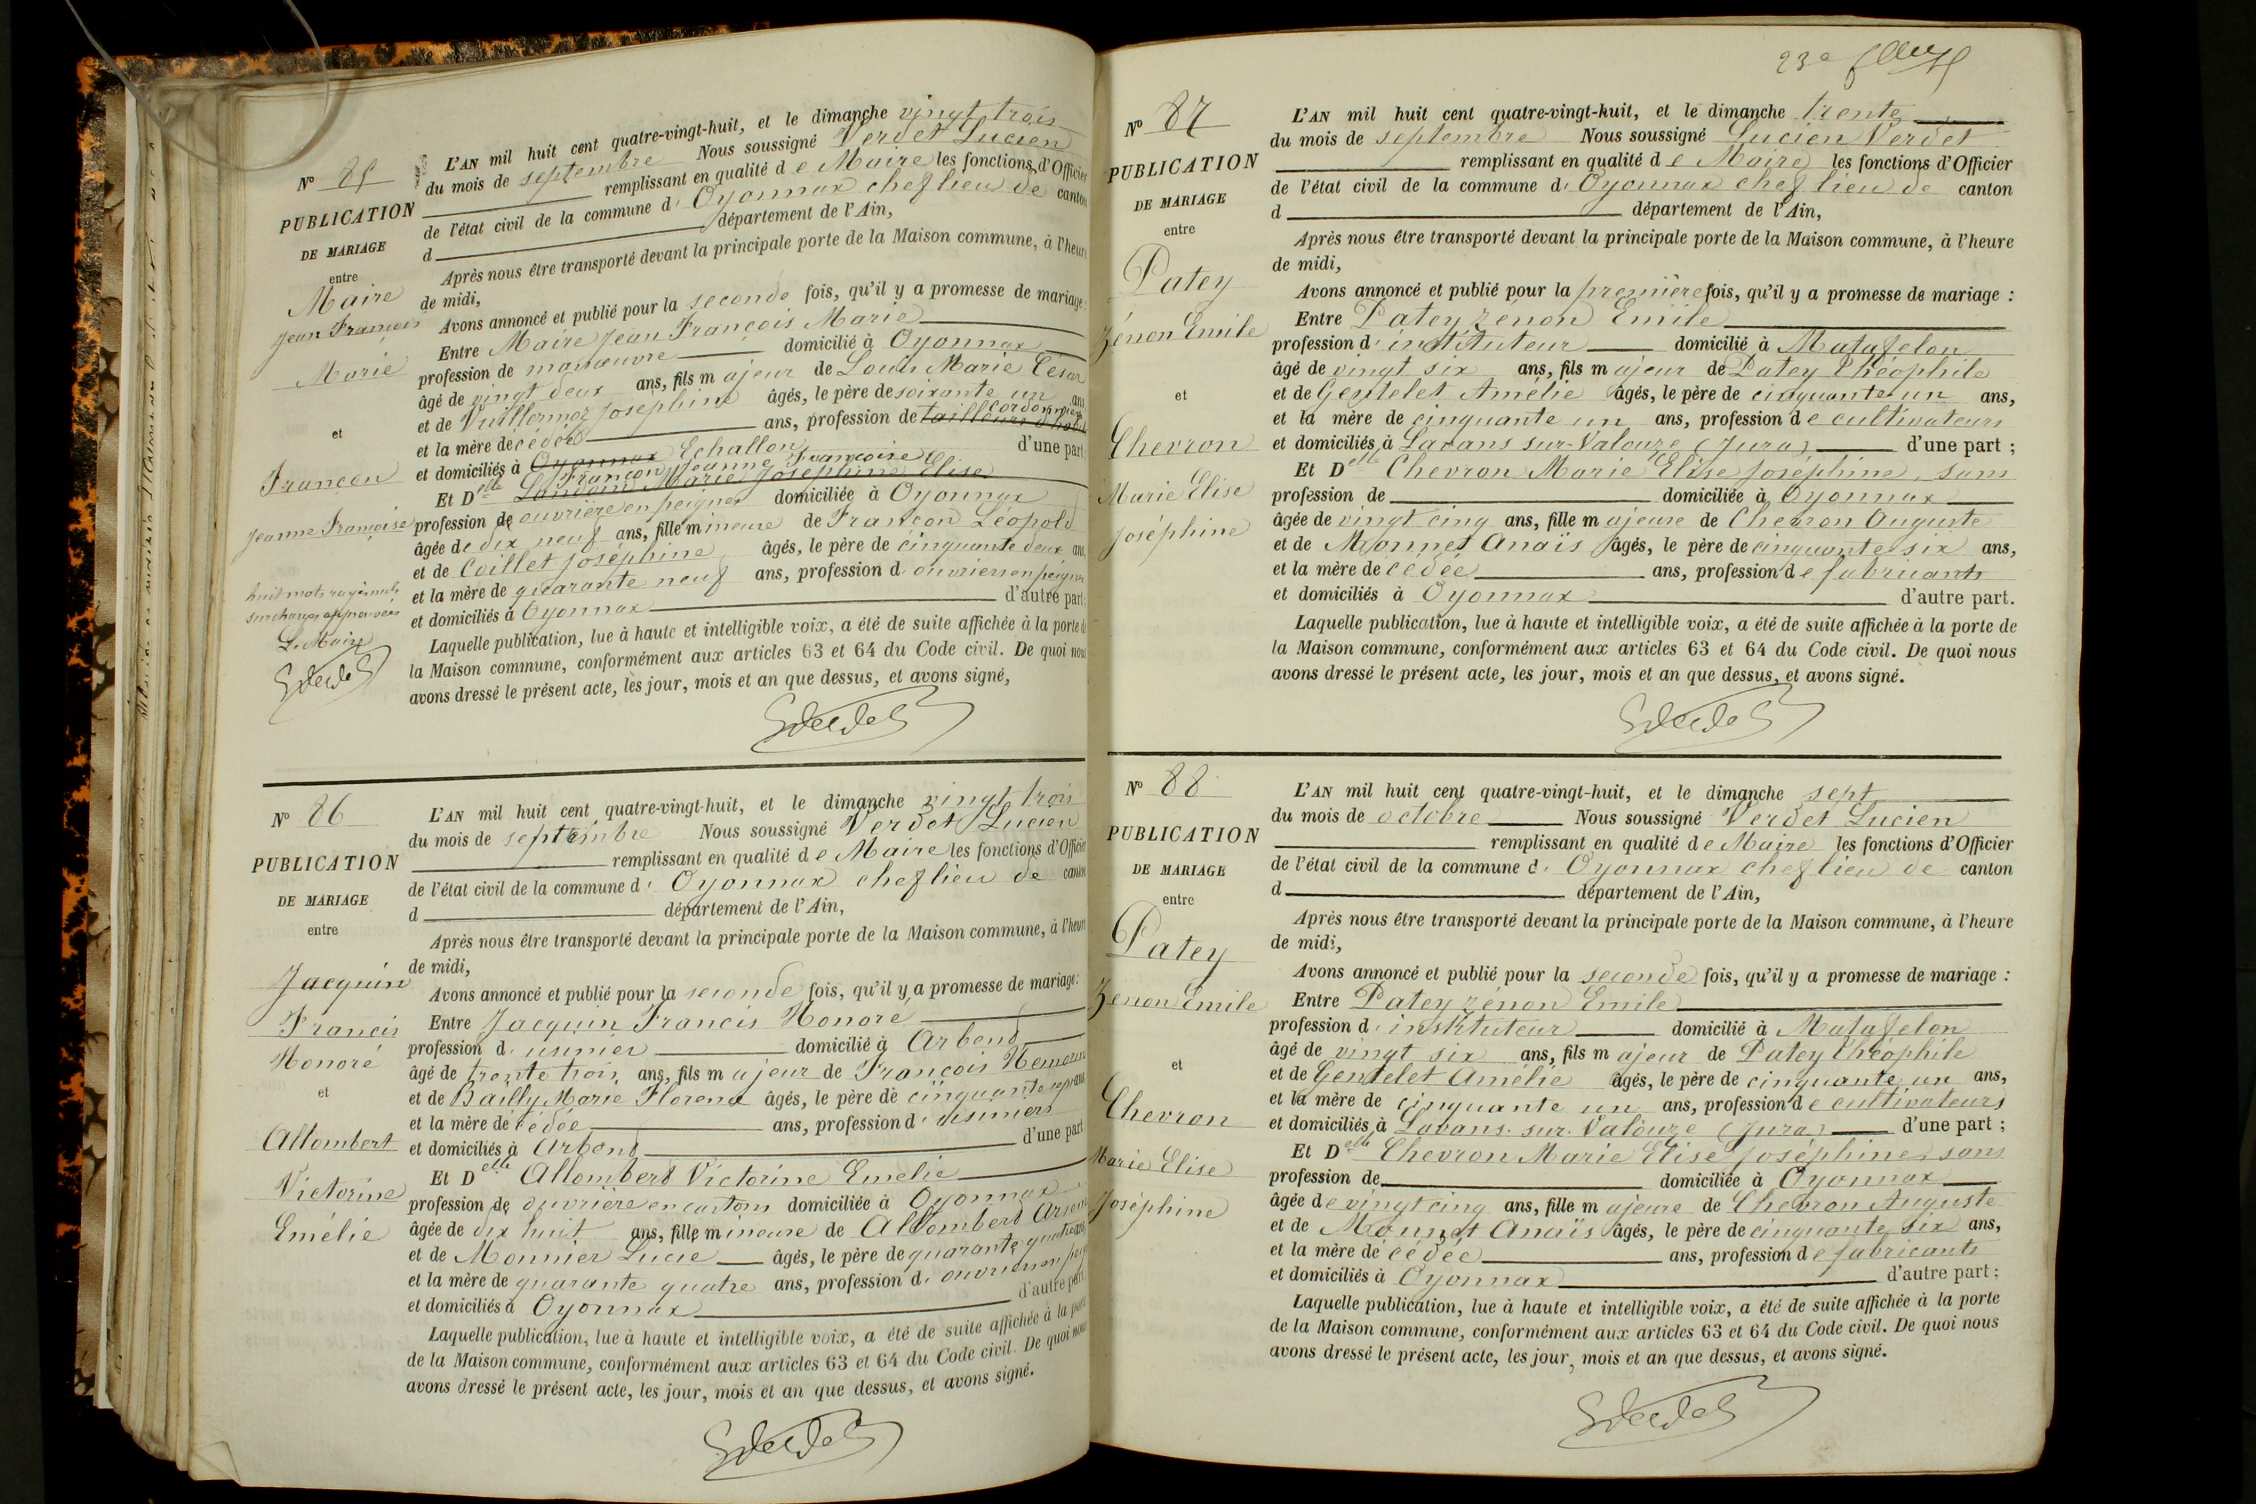 Nº 85
PUBLICATION
DE MARIAGE
entre
Maire
Jean François
Marie
et
Françon
Jeanne Françoise
huit mots rayés nuls
surcharges approuvées
Le Maire
L'AN mil huit cent quatre-vingt-huit, et le dimanche vingt trois
du mois de septembre Nous soussigné Verdet Lucien
remplissant en qualité de Maire les fonctions d'Officier
de l'état civil de la commune d' Oyonnax chef lieu de canton
d département de l'Ain,
Après nous être transporté devant la principale porte de la Maison commune, à l'heure
de midi,
Avons annoncé et publié pour la seconde fois, qu'il y a promesse de mariage :
Entre Maire Jean François Marie
profession de manœuvre domicilié à Oyonnax
âgé de vingt deux ans, fils majeur de Louis Marie César
et de Vuillermoz Joséphine âgés, le père de soixante un ans
cordonnier
et la mère décédée ans, profession de tailleurs d'habits
et domiciliés à Oyonnax Echallon d'une part
Françon Jeanne Françoise
Et Delle Marie Joséphine Elise
profession de ouvrière en peignes domiciliée à Oyonnax
âgée de dix neuf ans, fille mineure de Françon Léopold
et de Coillet Joséphine âgés, le père de cinquante deux ans
et la mère de quarante neuf ans, profession d' ouvriers en peignes
et domiciliés à Oyonnax d'autre part;
Laquelle publication, lue à haute et intelligible voix, a été de suite affichée à la porte de
la Maison commune, conformément aux articles 63 et 64 du Code civil. De quoi nous
avons dressé le présent acte, les jour, mois et an que dessus, et avons signé,
Nº 86
PUBLICATION
DE MARIAGE
entre
Jacquin
Francis
Honoré
et
Allombert
Victorine
Emélie
L'AN mil huit cent quatre-vingt-huit, et le dimanche vingt trois
du mois de septembre Nous soussigné Verdet Lucien
remplissant en qualité de Maire les fonctions d'Officier
de l'état civil de la commune d' Oyonnax chef lieu de canton
d département de l'Ain,
Après nous être transporté devant la principale porte de la Maison commune, à l'heure
de midi,
Avons annoncé et publié pour la seconde fois, qu'il y a promesse de mariage :
Entre Jacquin Francis Honoré
profession d' usinier domicilié à Arbent
âgé de trente trois ans, fils majeur de François
et de Bailly Marie Florence âgés, le père de cinquante sept ans
et la mère décédée ans, profession d' usiniers
et domiciliés à Arbent d'une part
Et Delle Allombert Victorine Emélie
profession de ouvrière en cartons domiciliée à Oyonnax
âgée de dix huit ans, fille mineure de Allombert Arsène
et de Monnier Lucie âgés, le père de quarante quatre ans
et la mère de quarante quatre ans, profession d' ouvriers en peig
et domiciliés à Oyonnax d'autre part
Laquelle publication, lue à haute et intelligible voix, a été de suite affichée à la porte
de la Maison commune, conformément aux articles 63 et 64 du Code civil. De quoi nous
avons dressé le présent acte, les jour, mois et an que dessus, et avons signé.
23e
Nº 87
PUBLICATION
DE MARIAGE
entre
Patey
Zénon Emile
et
Chevron
Marie Elise
Joséphine
L'AN mil huit cent quatre-vingt-huit, et le dimanche trente
du mois de septembre Nous soussigné Lucien Verdet
remplissant en qualité de Maire les fonctions d'Officier
de l'état civil de la commune d' Oyonnax chef lieu de canton
d département de l'Ain,
Après nous être transporté devant la principale porte de la Maison commune, à l'heure
de midi,
Avons annoncé et publié pour la première fois, qu'il y a promesse de mariage :
Entre Patey zénon Emile
profession d' instituteur domicilié à Matafelon
âgé de vingt six ans, fils majeur de Patey Théophile
et de Gentelet Amélie âgés, le père de cinquante un ans,
et la mère de cinquante un ans, profession de cultivateurs
et domiciliés à Lavans sur-Valouze (Jura) d'une part ;
Et Delle Chevron Marie Elise Joséphine, sans
profession de domiciliée à Oyonnax
âgée de vingt cinq ans, fille majeure de Chevron Auguste
et de Monnet Anaïs âgés, le père de cinquante six ans,
et la mère décédée ans, profession de fabricants
et domiciliés à Oyonnax d'autre part.
Laquelle publication, lue à haute et intelligible voix, a été de suite affichée à la porte de
la Maison commune, conformément aux articles 63 et 64 du Code civil. De quoi nous
avons dressé le présent acte, les jour, mois et an que dessus, et avons signé.
Nº 88
PUBLICATION
DE MARIAGE
entre
Patey
Zénon Emile
et
Chevron
Marie Elise
Joséphine
L'AN mil huit cent quatre-vingt-huit, et le dimanche sept
du mois de octobre Nous soussigné Verdet Lucien
remplissant en qualité de Maire les fonctions d'Officier
de l'état civil de la commune d' Oyonnax chef lieu de canton
d département de l'Ain,
Après nous être transporté devant la principale porte de la Maison commune, à l'heure
de midi,
Avons annoncé et publié pour la seconde fois, qu'il y a promesse de mariage :
Entre Patey zénon Emile
profession d' instituteur domicilié à Matafelon
âgé de vingt six ans, fils majeur de Patey Théophile
et de Gentelet Amélie âgés, le père de cinquante un ans,
et la mère de cinquante un ans, profession de cultivateurs
et domiciliés à Lavans-sur-Valouze (Jura) d'une part ;
Et Delle Chevron Marie Elise Joséphine, sans
profession de domiciliée à Oyonnax
âgée de vingt cinq ans, fille majeure de Chevron Auguste
et de Monnet Anaïs âgés, le père de cinquante six ans,
et la mère décédée ans, profession de fabricants
et domiciliés à Oyonnax d'autre part ;
Laquelle publication, lue à haute et intelligible voix, a été de suite affichée à la porte
de la Maison commune, conformément aux articles 63 et 64 du Code civil. De quoi nous
avons dressé le présent acte, les jour, mois et an que dessus, et avons signé.